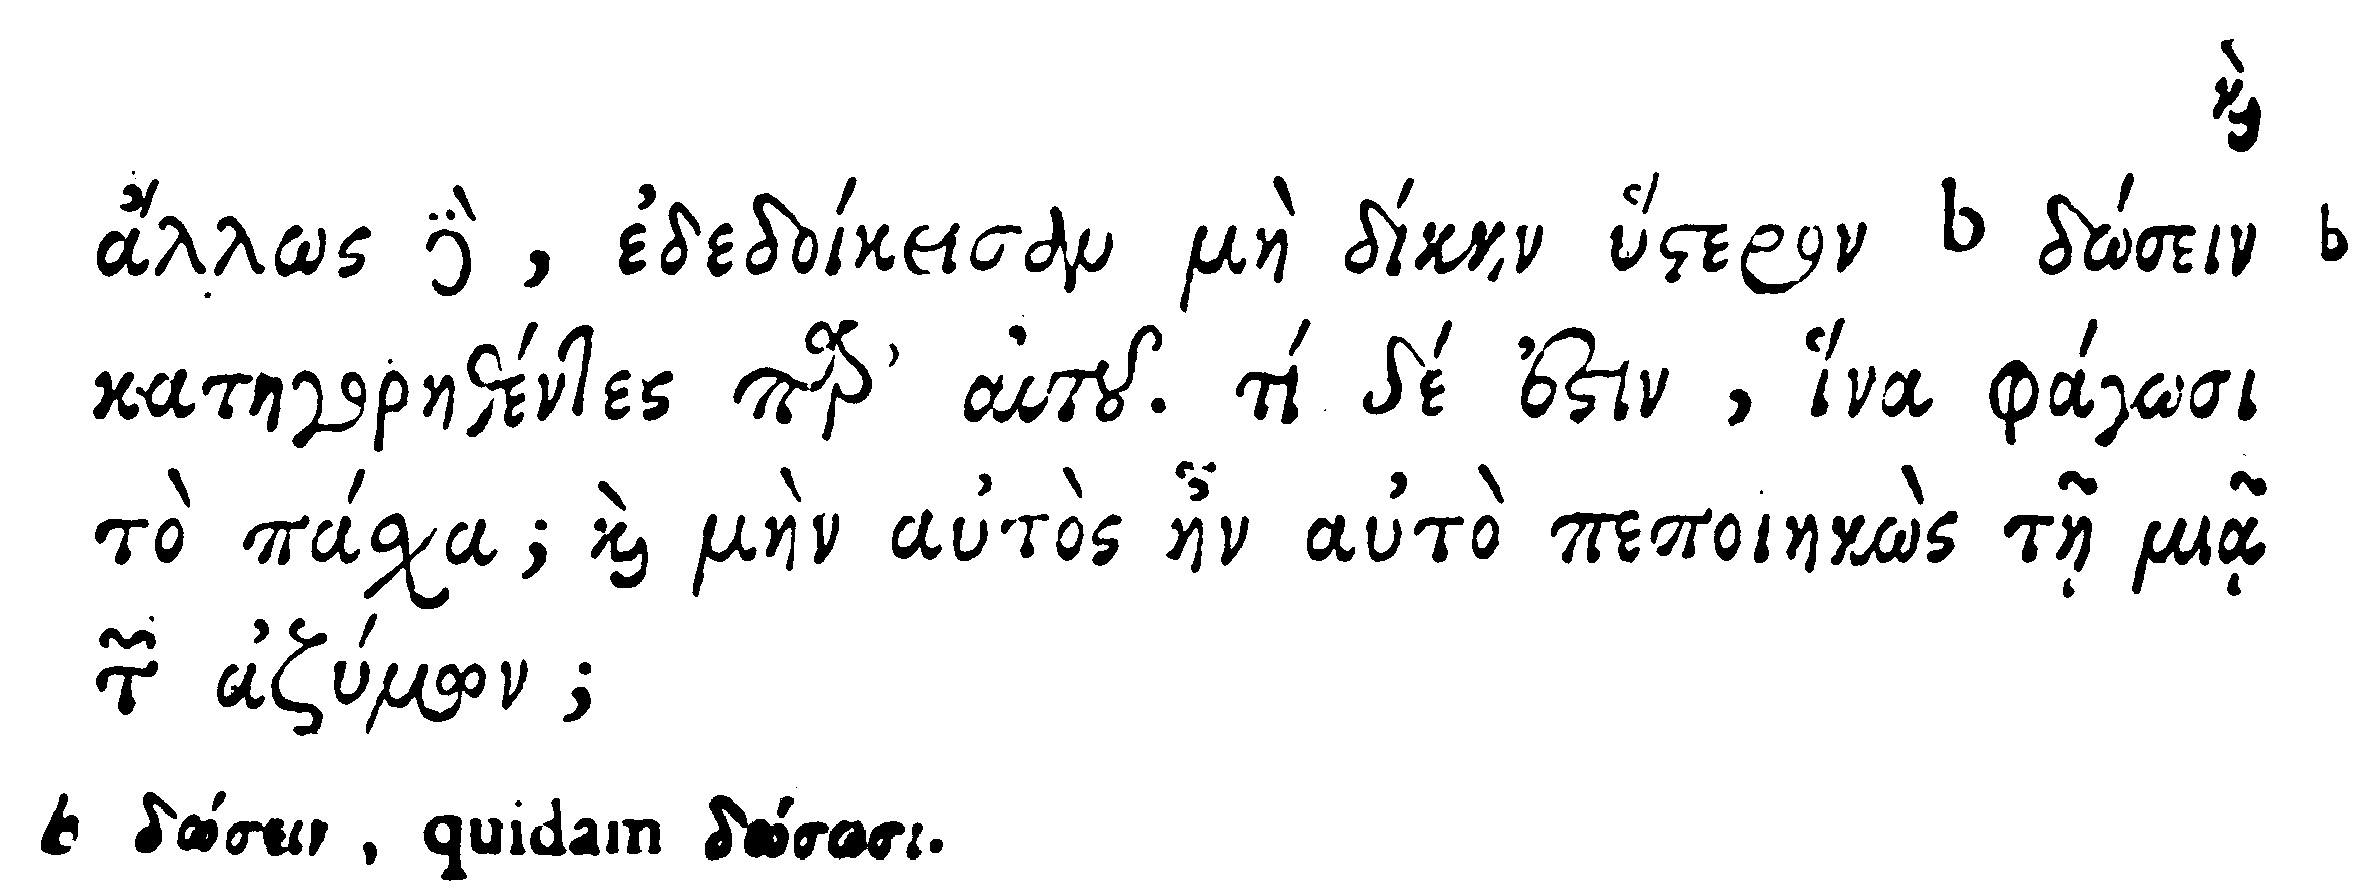 καὶ
ἄλλως δὲ, ἐδεδοίκεισαν μὴ δίκην ὕστερον b δώσειν b
κατηγορηθέντες παρ' αὐτοῦ. τί δέ ἐστιν, ἵνα φάγωσι
τὸ πάσχα; καὶ μὴν αὐτὸς ἦν αὐτὸ πεποιηκὼς τῇ μιᾷ
τῶν ἀζύμων;
b δώσειν, quidam δώσωσι.